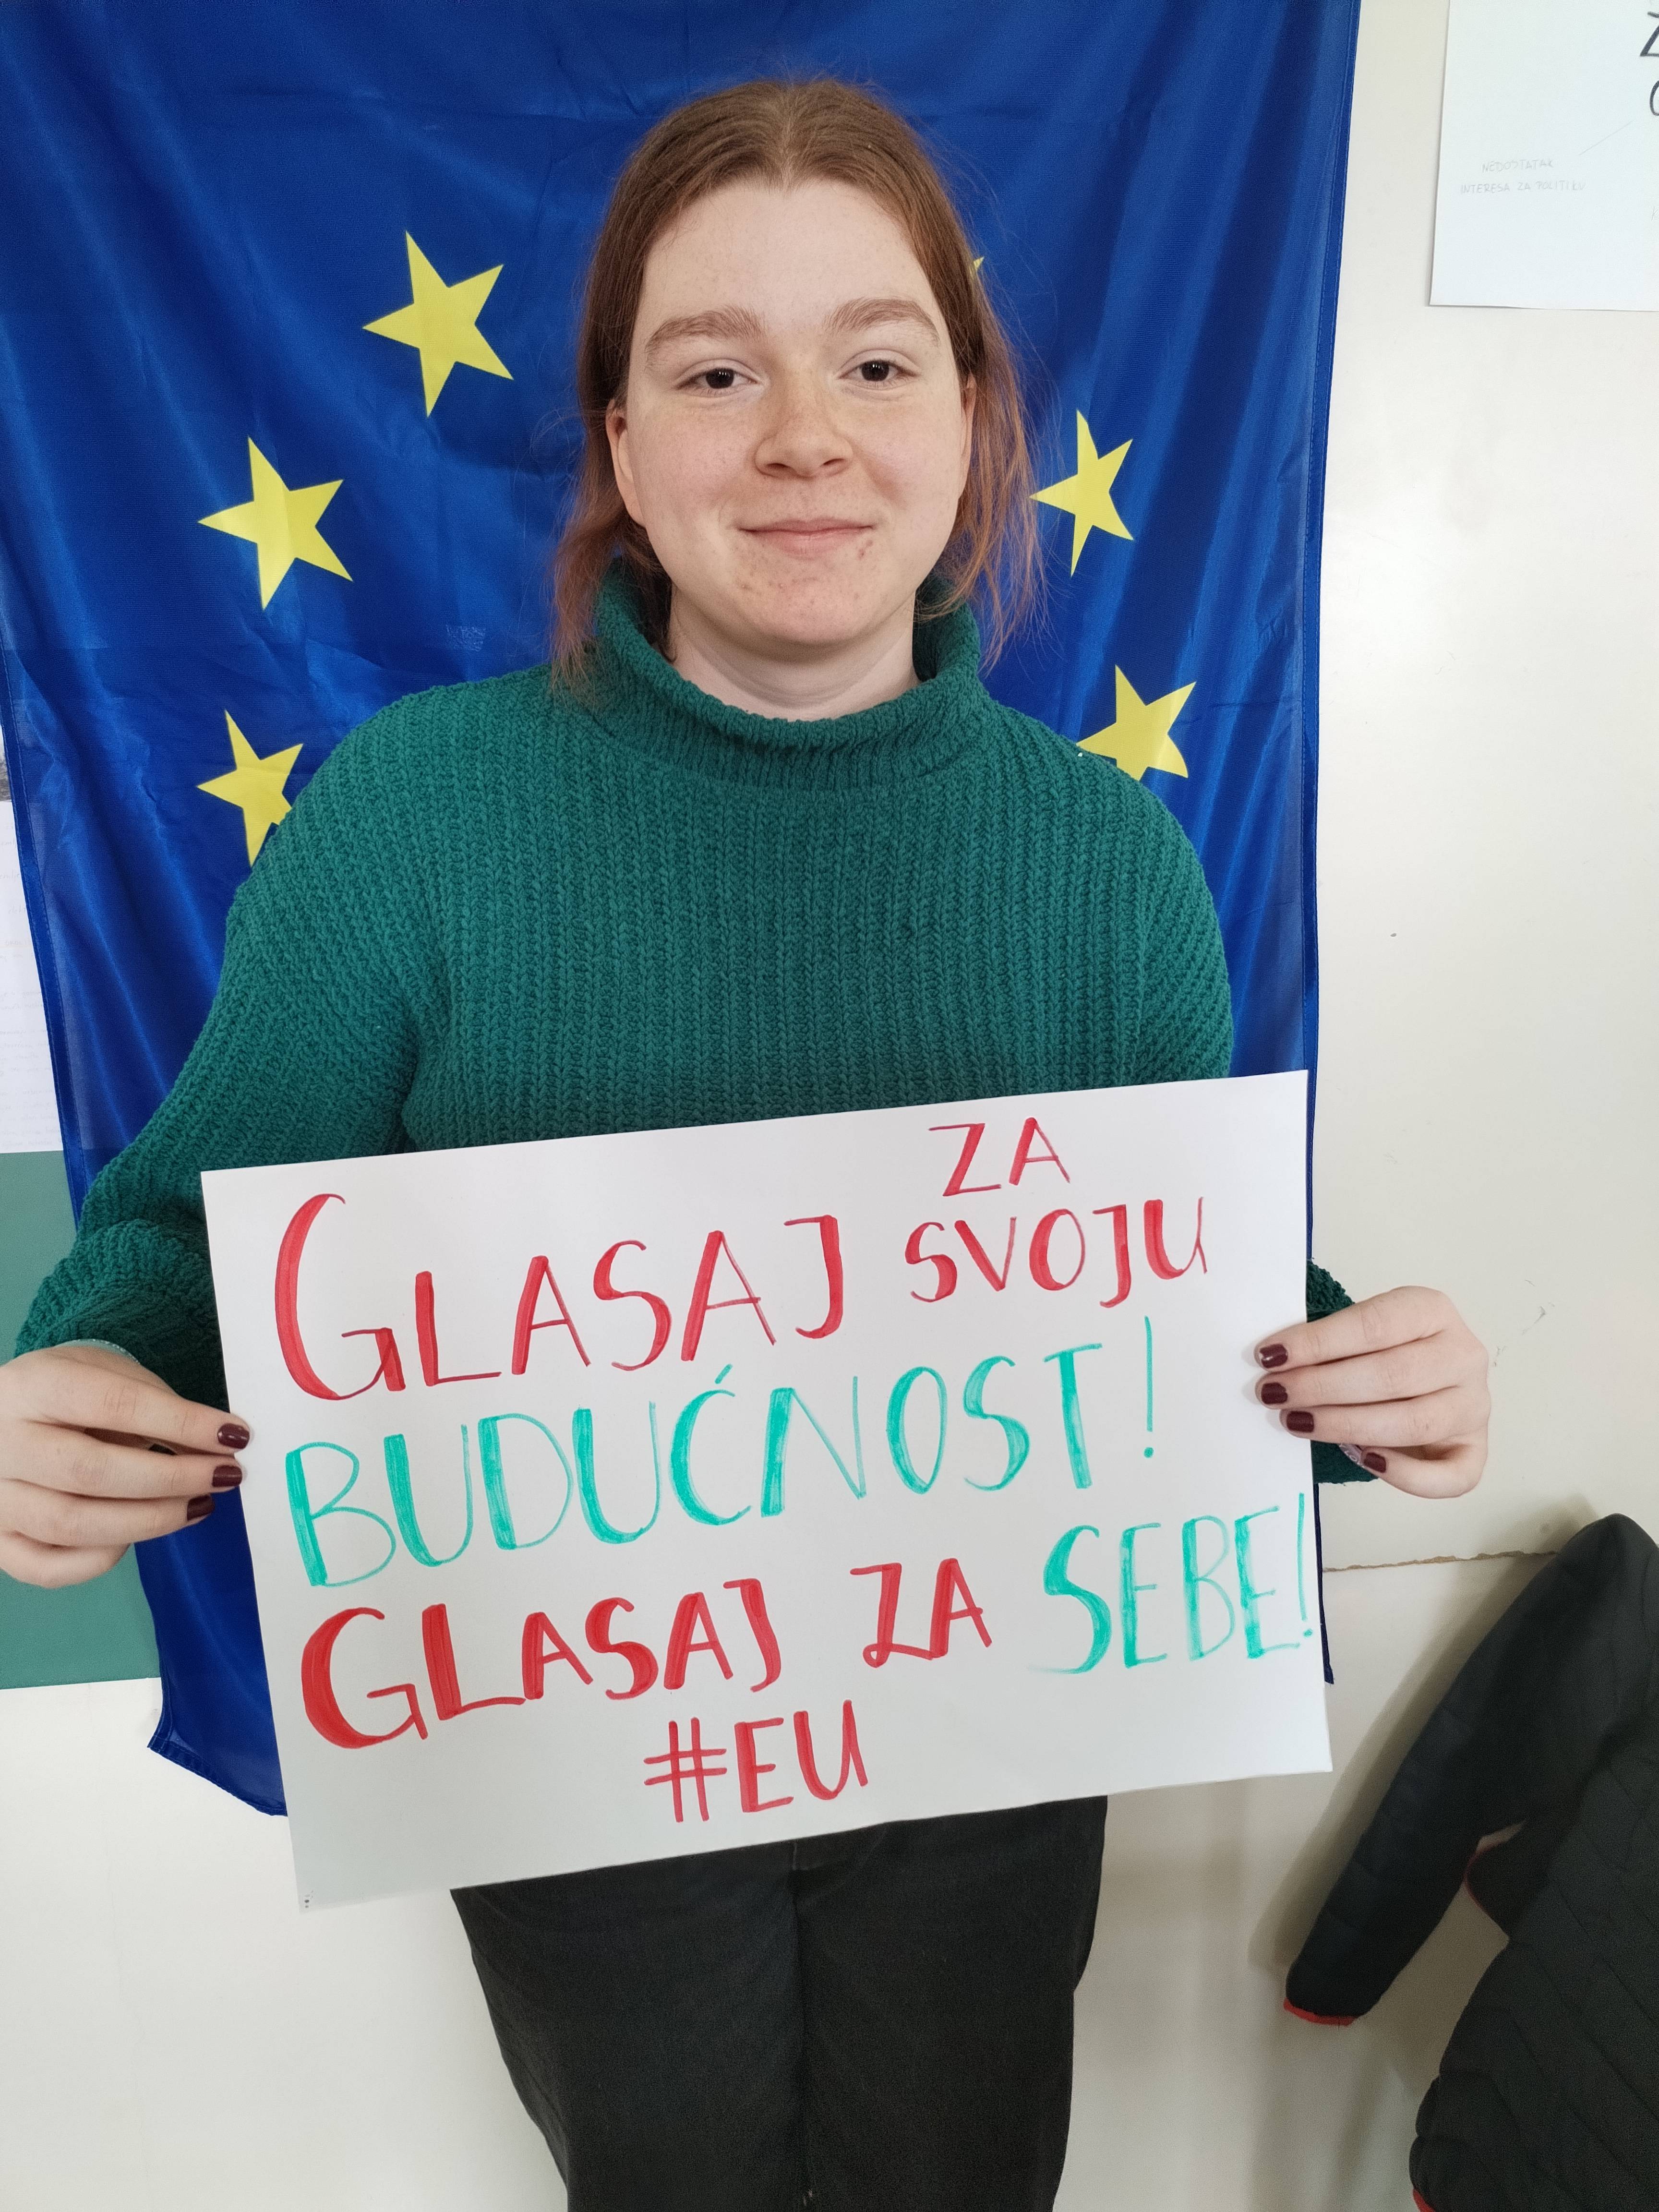 GLASAJ ZA SVOJU
BUDUĆNOST!
GLASAJ ZA SEBE!
#EU
NEDOSTATAK
INTERESA ZA POLITIKU